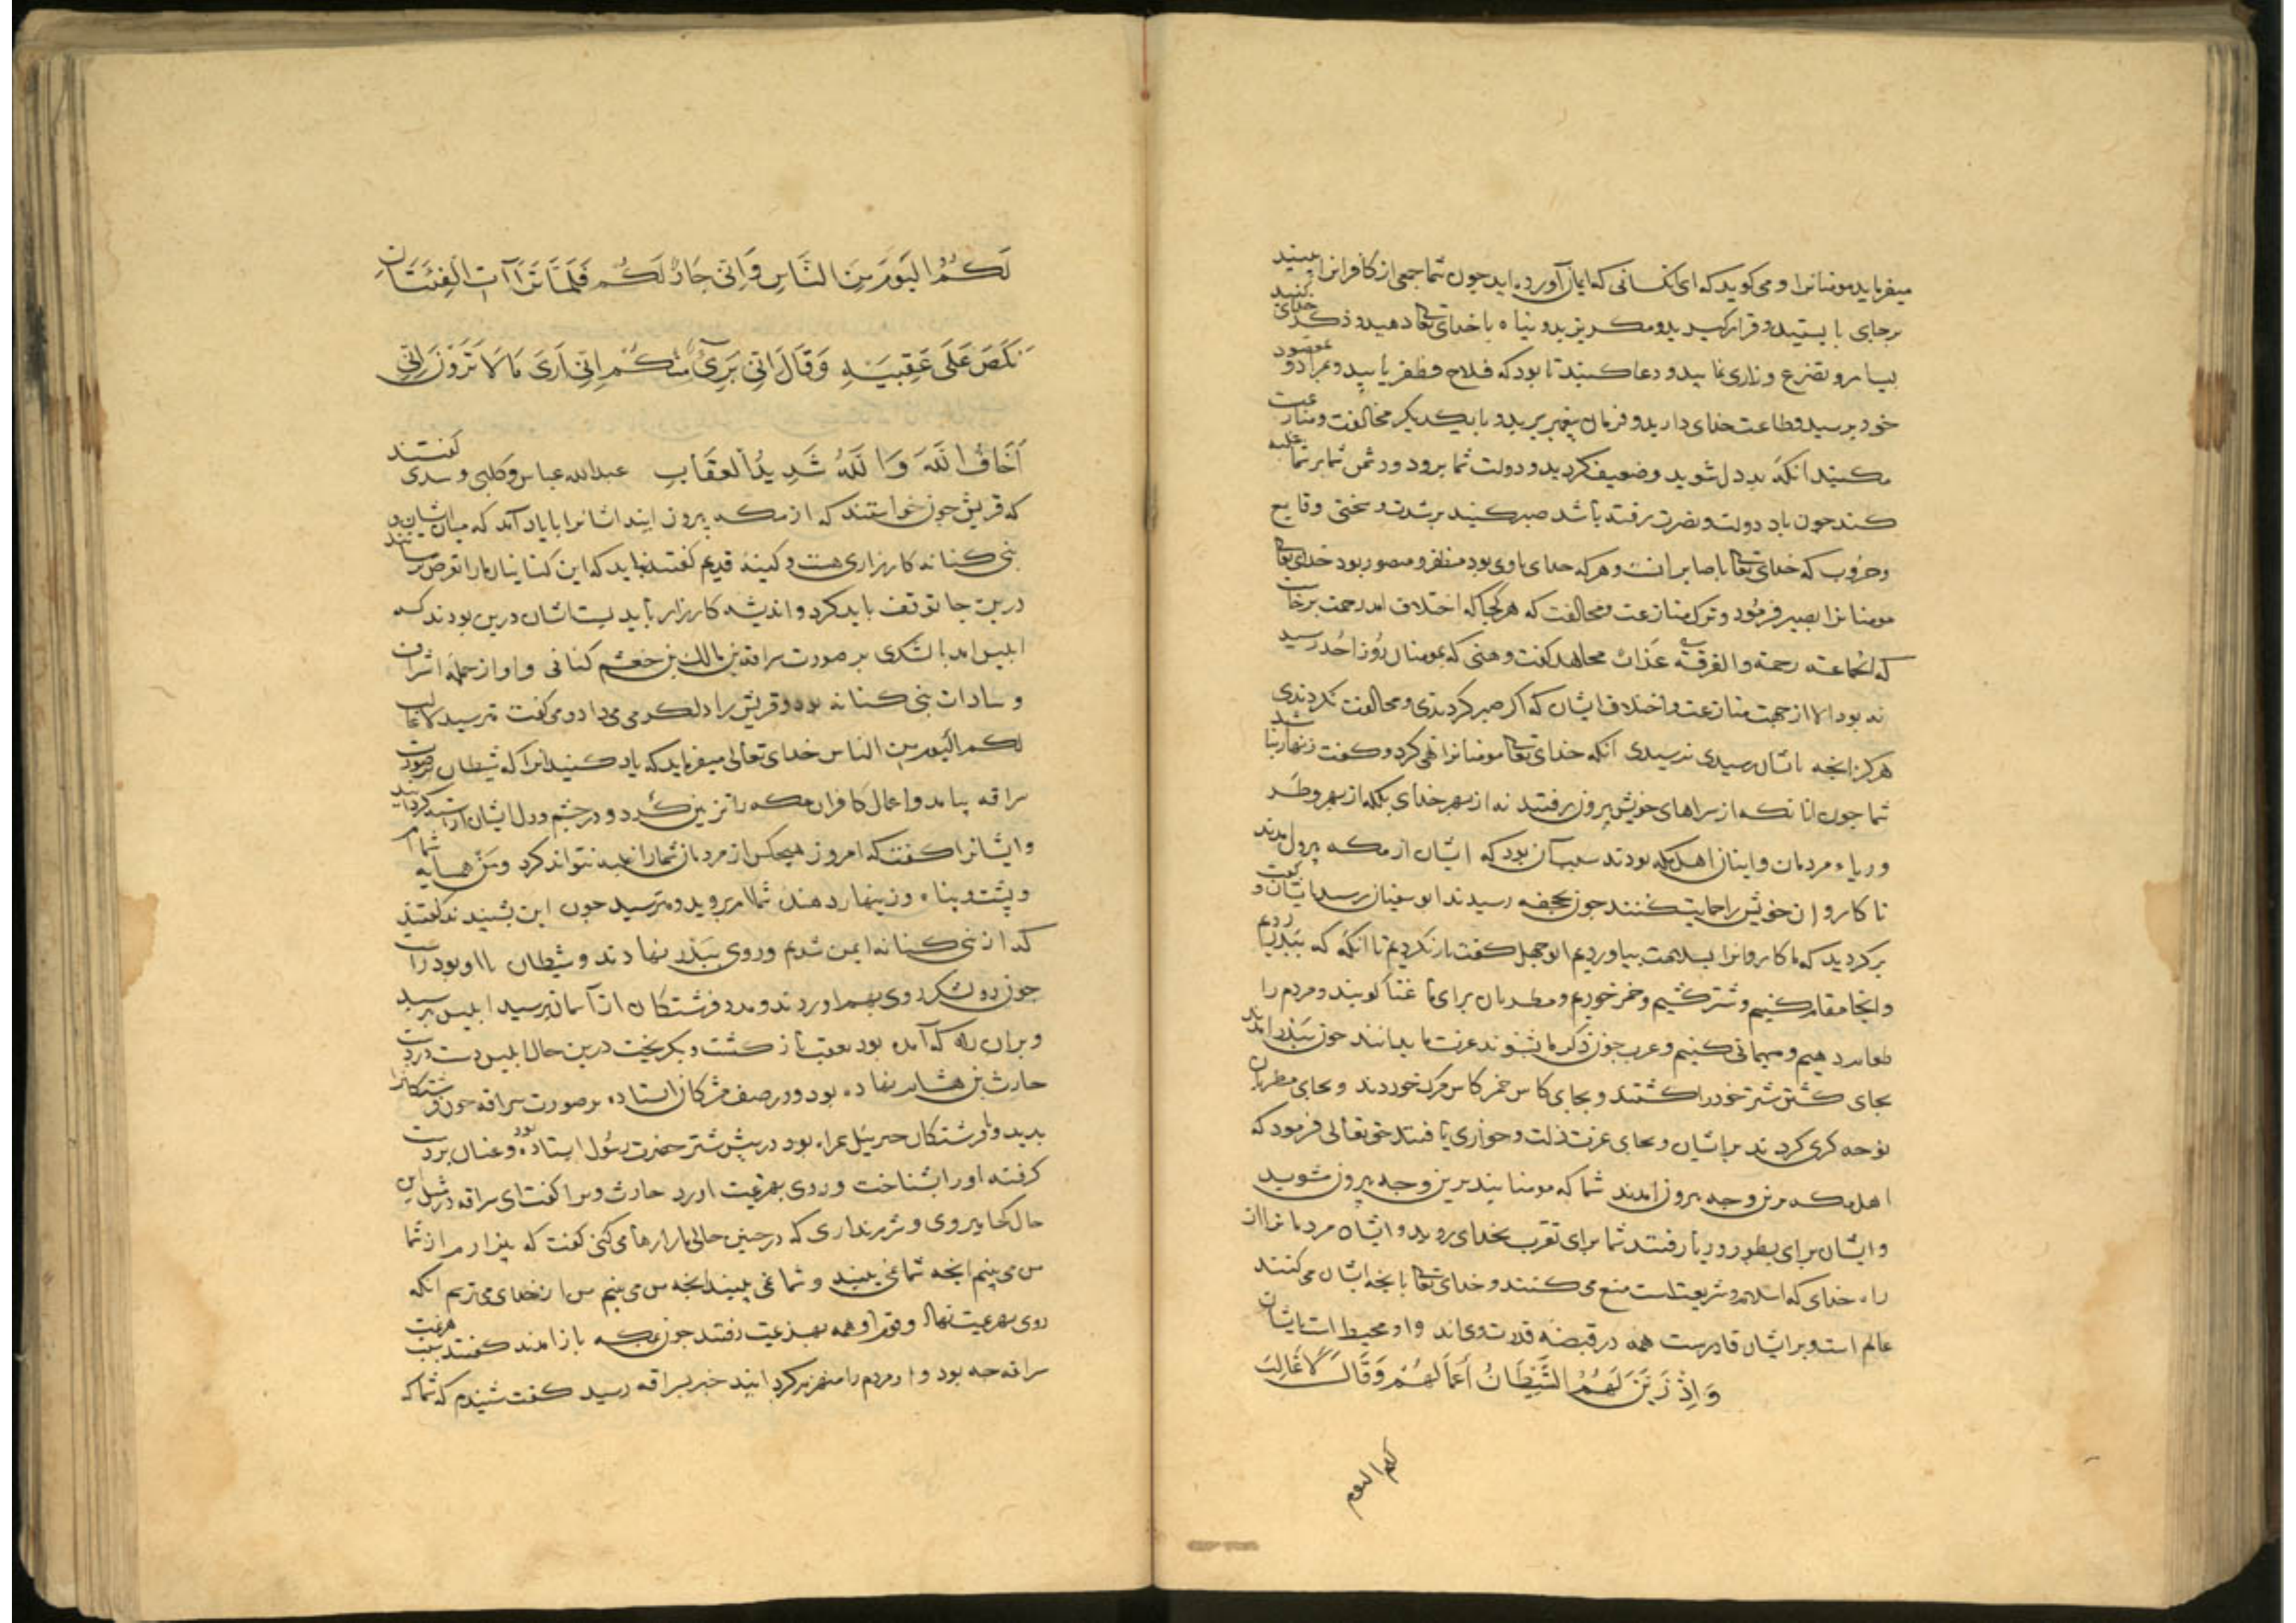 میفرماید مومنانرا و می کوید که ای انکسانی که ایمان آورده اید جون شما جمعی از کافرانرا ببینید
برجای بایستید و قرار کیرید و مکریزید و پناه با خدای تعا دهید و ذکر خدای کنید
بسیار و تضرع و زاری نمایید و دعا کنید تا بود که فلاح و ظفر یابید و بمراد و مقصود
خود برسید و طاعت خدای دارید و فرمان پیغمبر برید و با یکدیکر مخالفت و منازعت
مکنید انکه بددل شوید و ضعیف کردید و دولت شما برود و دشمن شما بر شما غلبه
کند جون باد دولت و نصرت رفته باشد صبر کنید بر شدت و سختی وقایع
و حروب که خدای تعا با صابرانست و هر که خدای با وی بود مظفر و منصور بود خدای تعا
مومنانرا بصبر فرمود و ترک منازعت و مخالفت که هر کجا که اختلاف امد رحمت برخاست
که الجماعة رحمة والفرقة عذاب مجاهد کفت وهنی که بمومنان روز احد رسید
نه بود الا از جهت منازعت و اختلاف ایشان که اکر صبر کردندی و مخالفت نکردندی
هرکز انجه باشان رسیدی نرسیدی انکه خدای تعا مومنانرا نهی کرد و کفت زنهار تا
شما جون انانکه از سراهای خویش بیرون رفتند نه از بهر خدای بلکه از بهر و بطر
و ریاء مردمان و اینان اهل مکه بودند سبب آن بود که ایشان از مکه بیرون امدند
تا کاروان خویش را حمایت کنند جون بجحفه رسیدند ابوسفیان رسید باشان و کفت
برکردید که ما کاروانرا بسلامت بیاوردیم ابوجهل کفت بازنکردیم تا انکه که ببدر رویم
و انجا مقام کنیم و شتر کشیم و خمر خوریم و مطربان برای ما غنا کویند و مردم را
طعام دهیم و مهمانی کنیم و عرب جون ذکر ما شنوند عزت ما بدانند جون ببدر امدند
بجای کشتن شتر خود را کشتند و بجای کاس خمر کاس مرک خوردند و بجای مطربان
نوحه کری کردند بر ایشان و بجای عزت ذلت و خواری یافتند حق تعالی فرمود که
اهل مکه برین وجه بیرون امدند شما که مومنانید برین وجه بیرون مشوید
و ایشان برای بطر و ریا رفتند شما برای تقرب بخدای روید و ایشان مردمانرا از
راه خدای که اسلام و شریعت است منع می کنند و خدای تعا بانجه ایشان می کنند
عالم است و بر ایشان قادرست همه در قبضه قدرت وی اند و او محیط است بایشان
وَاِذْ زَیَّنَ لَهُمُ الشَّیْطَانُ أَعْمَالَهُمْ وَقَالَ لَا غَالِبَ
لکم الیوم
لَکُمُ الْیَوْمَ مِنَ النَّاسِ وَاِنّی جَارٌ لَکُمْ فَلَمَّا تَرَاآتِ الْفِئَتَانِ
نَکَصَ عَلَی عَقِبَیْهِ وَقَالَ اِنّی بَرِیءٌ مِنْکُمْ اِنّی اَرَی مَا لَا تَرَوْنَ اِنّی
اَخَافُ اللَّهَ وَاللَّهُ شَدِیدُ الْعِقَابِ عبدالله عباس و کلبی و سدی کفتند
که قریش جون خواستند که از مکه بیرون ایند اشانرا با یاد آمد که میان ایشان و
بنی کنانه کارزاری هست و کینه قدیم کفتند نباید که این کنانیان ما را تعرض رسانند
درین جا توقف باید کرد و اندیشه کارزار باید بست اشان درین بودند که
ابلیس امد با لشکری بر صورت سراقه بن مالک بن جعشم کنانی و او از جمله اشراف
و سادات بنی کنانه بود و قریش را دلکرمی می داد و می کفت مترسید لا غالب
لکم الیوم من الناس خدای تعالی میفرماید که یاد کنید انرا که شیطان بر صورت
سراقه بیامد و اعمال کافران مکه را تزیین کرد و در جشم و دل ایشان اراسته کردانید
و ایشانرا کفت که امروز هیجکس از مردمان شمارا غلبه نتواند کرد و من همسایه شماام
و پشت و پناه و زینهار دهنده شماام بروید و مترسید جون این بشنیدند کفتند
که از بنی کنانه ایمن شدیم و روی ببدر نهادند و شیطان با او بود راست
جون دو لشکر روی بهم اوردند و مدد فرشتکان از آسمان برسید ابلیس بترسید
و بران راه که آمده بود بعقب باز کشت و بکریخت درین حال ابلیس دست در دست
حارث بن هشام نهاده بود و در صف مشرکان ایستاده بر صورت سراقه جون فرشتکانرا
بدید و با فرشتکان جبرئیل همراه بود در پیش شتر حضرت رسول ایستاده بود و عنان بر دست
کرفته او را بشناخت و روی بهزیمت اورد حارث ویرا کفت ای سراقه در مثل این
حال کجا میروی و شرم نداری که در جنین حالی ما را رها می کنی کفت که بیزارم از شما
من می بینم انجه شما نمی بینید و شما نمی بینید انجه من می بینم من از خدای می ترسم انکه
روی بهزیمت نهاد و قوم او همه بهزیمت رفتند جون بمکه باز امدند کفتند سبب هزیمت
سراقه جه بود و او مردم را منهزم کردانید خبر بسراقه رسید کفت شنیدم که شما که